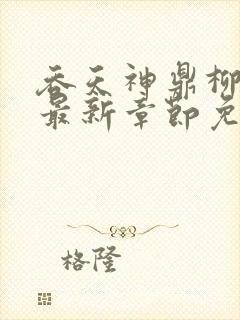 吞天神鼎柳
最新章节免
格隆